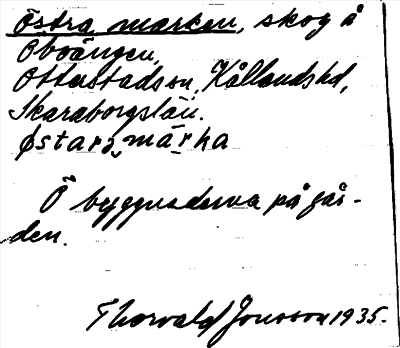 Östra marken, skog å
Oboängen,
Otterstads sn, Kållands hd,
Skaraborgs län.
østarə mærka
Ö byggnaderna på går-
den.
Thorvald Jonsson 1935.